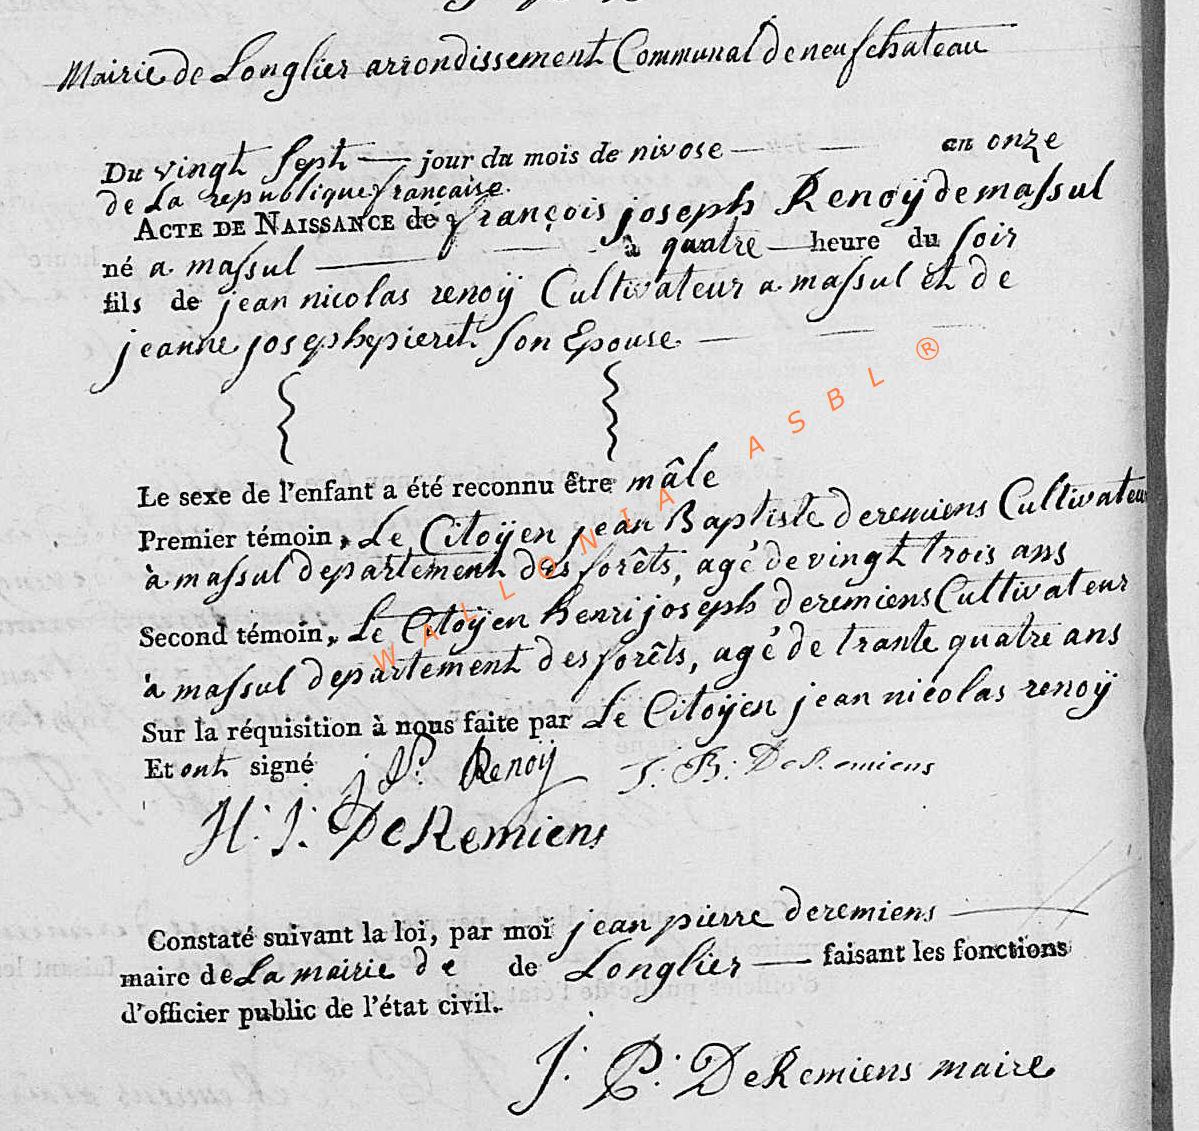 Mairie de Longlier arrondissement Communal de neufchateau
Du vingt Sept jour du mois de nivose an onze
de La republique française.
ACTE DE NAISSANCE de françois joseph Renoÿ de massul
né a massul à quatre heure du soir
fils de jean nicolas renoÿ Cultivateur a massul et de
jeanne josephe pieret Son Epouse
Le sexe de l'enfant a été reconnu être mâle
Premier témoin, Le Citoÿen jean Baptiste deremiens Cultivateur
à massul departement des forêts, agé de vingt trois ans
Second témoin, Le Citoÿen henri joseph deremiens Cultivateur
à massul departement des forêts, agé de trante quatre ans
Sur la réquisition à nous faite par Le Citoÿen jean nicolas renoÿ
Et ont signé Renoÿ J. B. DeRemiens
H. J. DeRemiens
Constaté suivant la loi, par moi jean pierre deremiens
maire de La mairie de de Longlier faisant les fonctions
d'officier public de l'état civil.
J. P. DeRemiens maire
WALLONIA ASBL ®